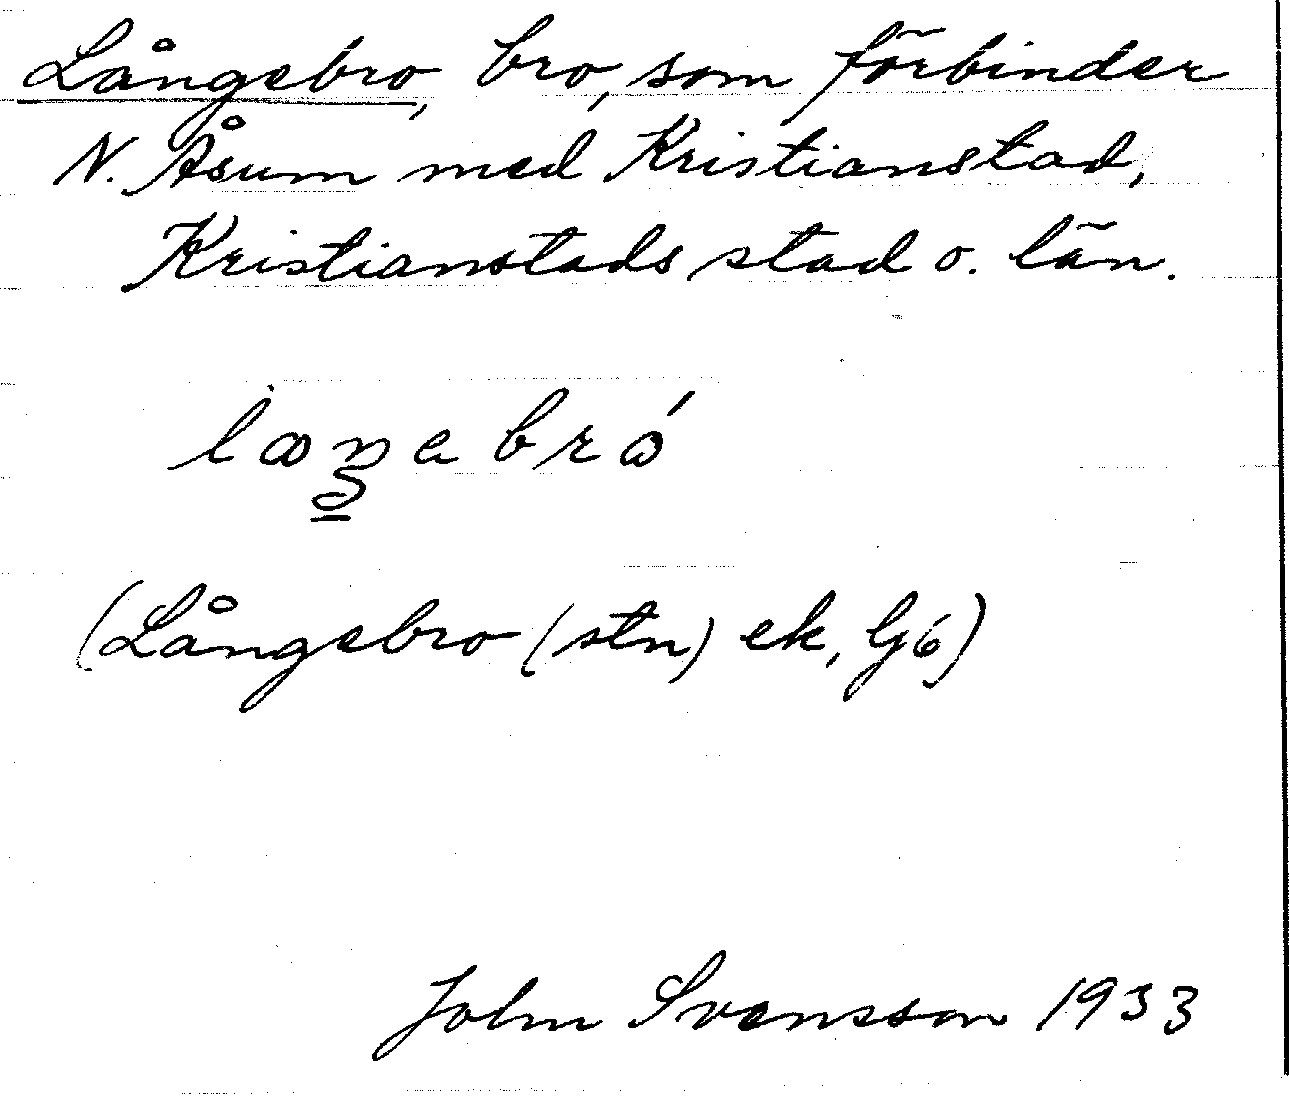 Långebro, bro, som förbinder
N. Åsum med Kristianstad,
Kristianstads stad o. län.
(Långebro (stn) ek, G6)
John Svensson 1933